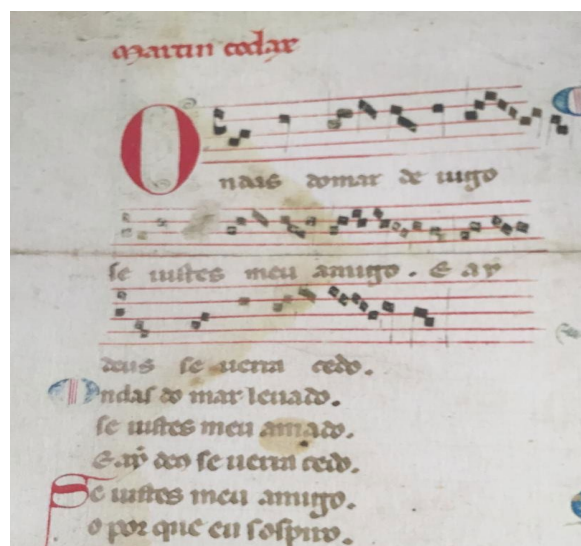 martin codax
Ondas do mar de uigo
se uistes meu amigo. E ay
deus se uerra cedo.
Ondas do mar leuado.
se uistes meu amado.
E ay deus se uerra cedo.
Se uistes meu amigo.
o por que eu sospiro.